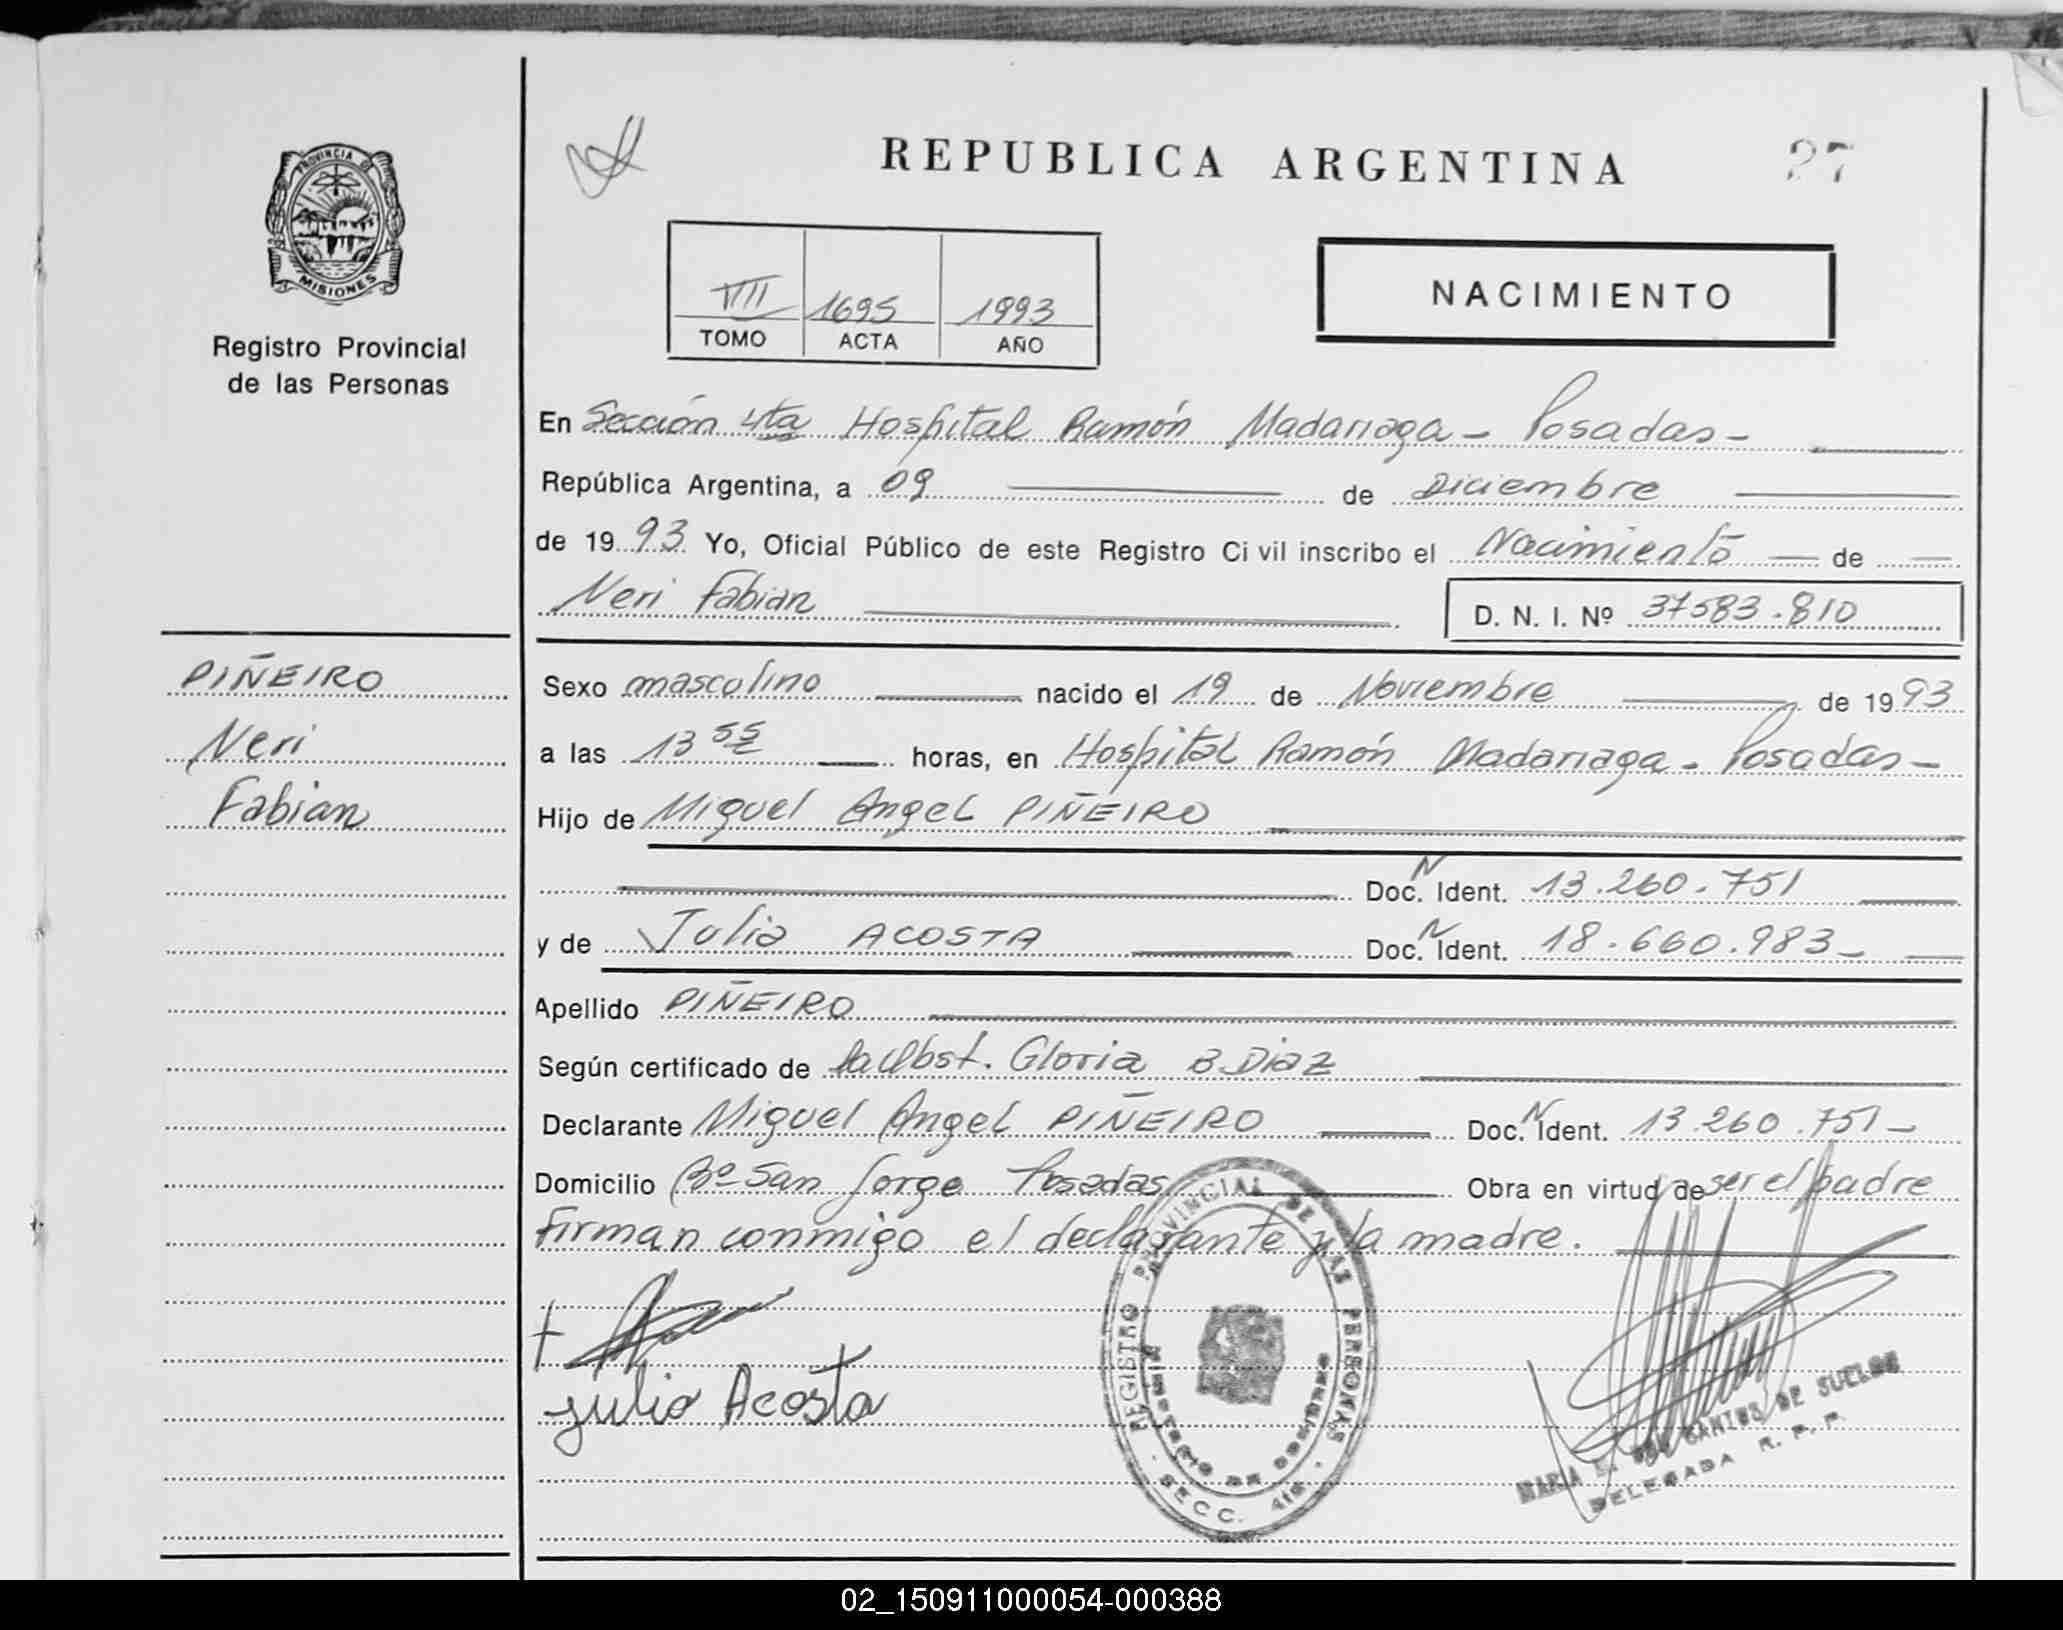 PROVINCIA DE
MISIONES
Registro Provincial
de las Personas
REPUBLICA ARGENTINA
27
VIII 1695 1993
TOMO ACTA AÑO
NACIMIENTO
En Sección 4ta Hospital Ramón Madariaga - Posadas -
República Argentina, a 09 de Diciembre
de 1993 Yo, Oficial Público de este Registro Civil inscribo el Nacimiento de
Neri Fabian
D. N. I. Nº 37583.810
PIÑEIRO
Neri
Fabian
Sexo masculino nacido el 19 de Noviembre de 1993
a las 13 55 horas, en Hospital Ramón Madariaga - Posadas -
Hijo de Miguel Angel PIÑEIRO
Doc. N Ident. 13.260.751
y de Julia ACOSTA Doc. N Ident. 18.660.983 -
Apellido PIÑEIRO
Según certificado de la Obst. Gloria B. Diaz
Declarante Miguel Angel PIÑEIRO Doc. N Ident. 13.260.751 -
Domicilio Bº San Jorge Posadas Obra en virtud de ser el padre
Firman conmigo el declarante y la madre.
Julia Acosta
REGISTRO PROVINCIAL DE LAS PERSONAS
SECC. 4ta.
MARIA DE SUELDO
DELEGADA R. P. P.
02_150911000054-000388